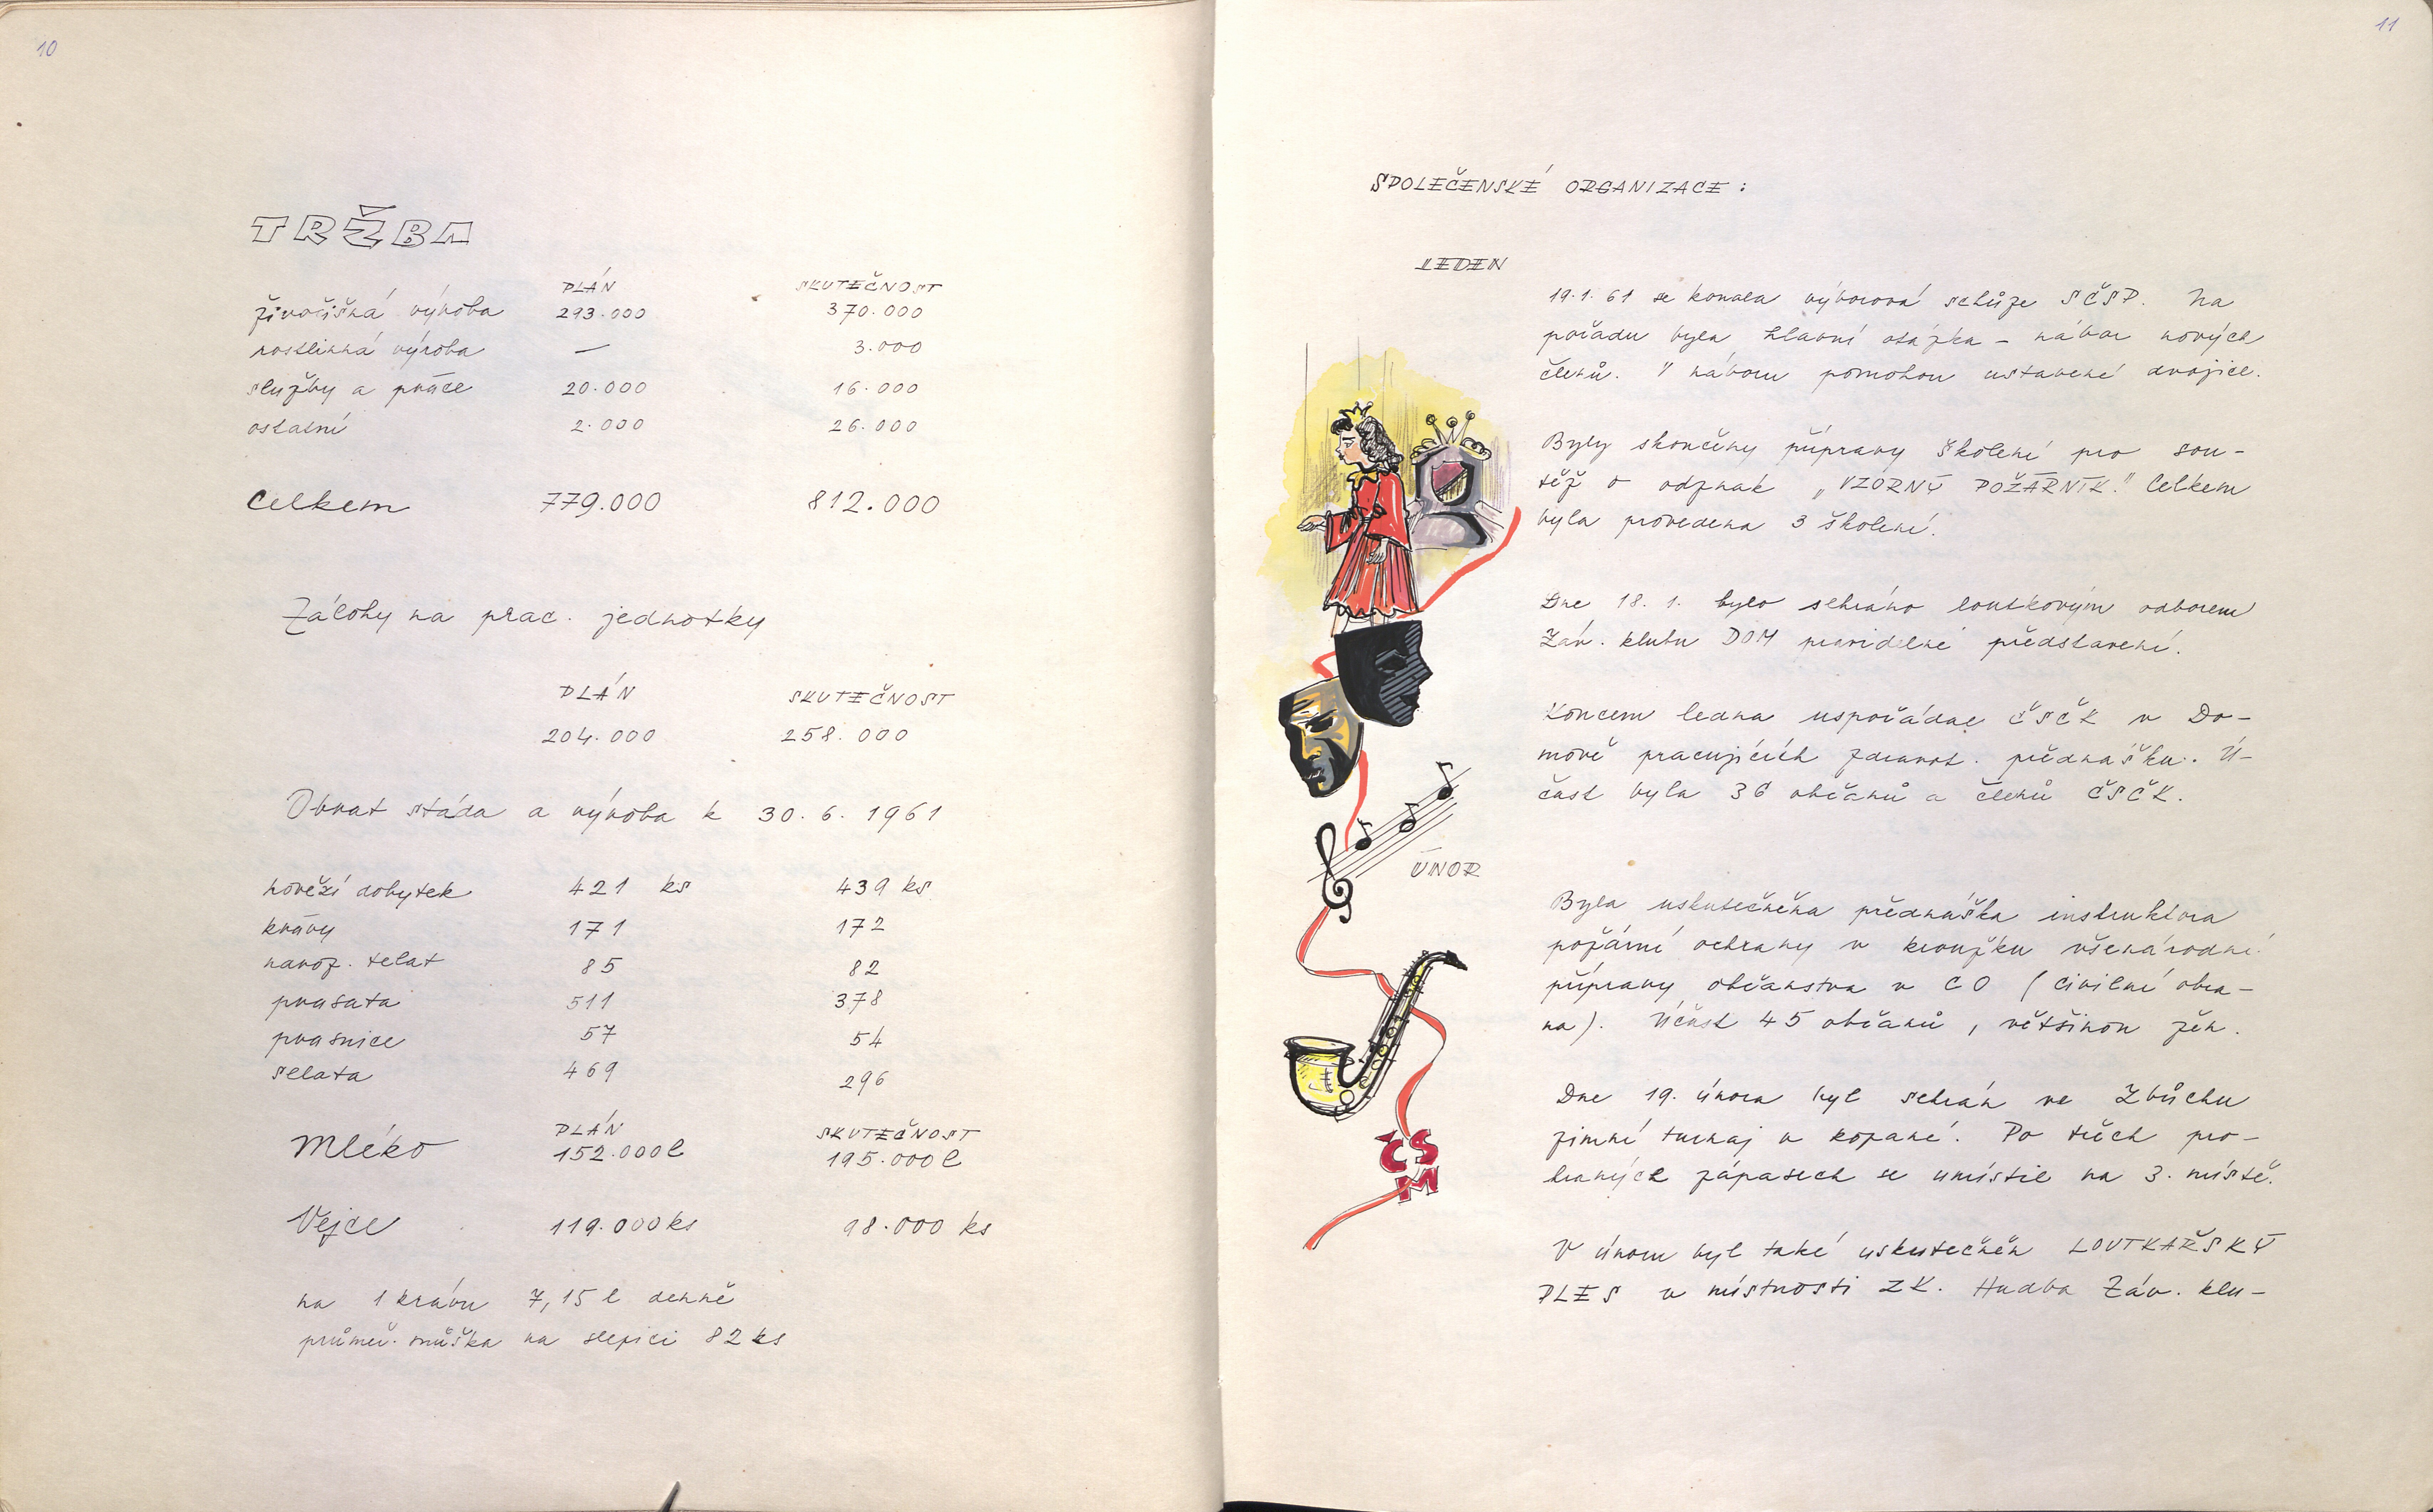 10
TRŽBA
PLÁN SKUTEČNOST
živočišná výroba 293.000 370.000
rostlinná výroba — 3.000
služby a práce 20.000 16.000
ostatní 2.000 26.000
Celkem 779.000 812.000
Zálohy na prac. jednotky
PLÁN SKUTEČNOST
204.000 258.000
Obrat stáda a výroba k 30.6.1961
hovězí dobytek 421 ks 439 ks
krávy 171 172
naroz. telat 85 82
prasata 511 378
prasnice 57 54
selata 469 296
PLÁN SKUTEČNOST
Mléko 152.000 l 195.000 l
Vejce 119.000 ks 98.000 ks
na 1 krávu 7,15 l denně
průměr. snůška na slepici 82 ks
11
SPOLEČENSKÉ ORGANIZACE:
LEDEN
19.1.61 se konala výborová schůze SČSP. Na
pořadu byla hlavní otázka – nábor nových
členů. V náboru pomohou ustavené dvojice.
Byly skončeny přípravy školení pro sou-
těž o odznak „VZORNÝ POŽÁRNÍK." Celkem
byla provedena 3 školení.
Dne 18.1. bylo sehráno loutkovým odborem
Záv. klubu DOM pravidelné představení.
Koncem ledna uspořádal ČSČK v Do-
mově pracujících zdravot. přednášku. Ú-
čast byla 36 občanů a členů ČSČK.
ÚNOR
Byla uskutečněna přednáška instruktora
požární ochrany v kroužku všenárodní
přípravy občanstva v CO (civilní obra-
na). Účast 45 občanů, většinou žen.
Dne 19. února byl sehrán ve Zbůchu
zimní turnaj v kopané. Po třech pro-
hraných zápasech se umístil na 3. místě.
ČS
M
V únoru byl také uskutečněn LOUTKAŘSKÝ
PLES v místnosti ZK. Hudba Záv. klu-